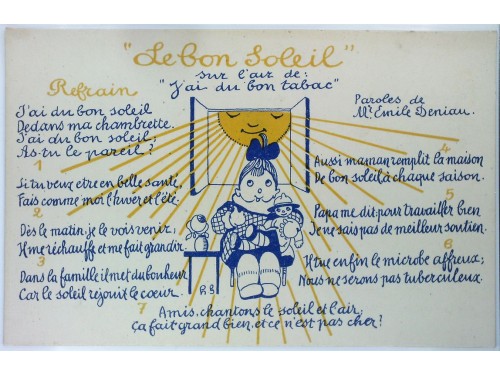 "Le bon Soleil"
sur l'air de:
"J'ai du bon tabac"
Paroles de
Mr. Emile Deniau.
Refrain
J'ai du bon soleil
Dedans ma chambrette.
J'ai du bon soleil;
As-tu le pareil?
1
Si tu veux être en belle santé,
Fais comme moi l'hiver et l'été.
2
Dès le matin, je le vois venir;
Il me réchauffe et me fait grandir.
3
Dans la famille il met du bonheur
Car le soleil réjouit le cœur.
4
Aussi maman remplit la maison
De bon soleil à chaque saison.
5
Papa me dit: pour travailler bien
Je ne sais pas de meilleur soutien.
6
Il tue enfin le microbe affreux;
Nous ne serons pas tuberculeux.
7
Amis, chantons le soleil et l'air,
Ça fait grand bien, et ce n'est pas cher!